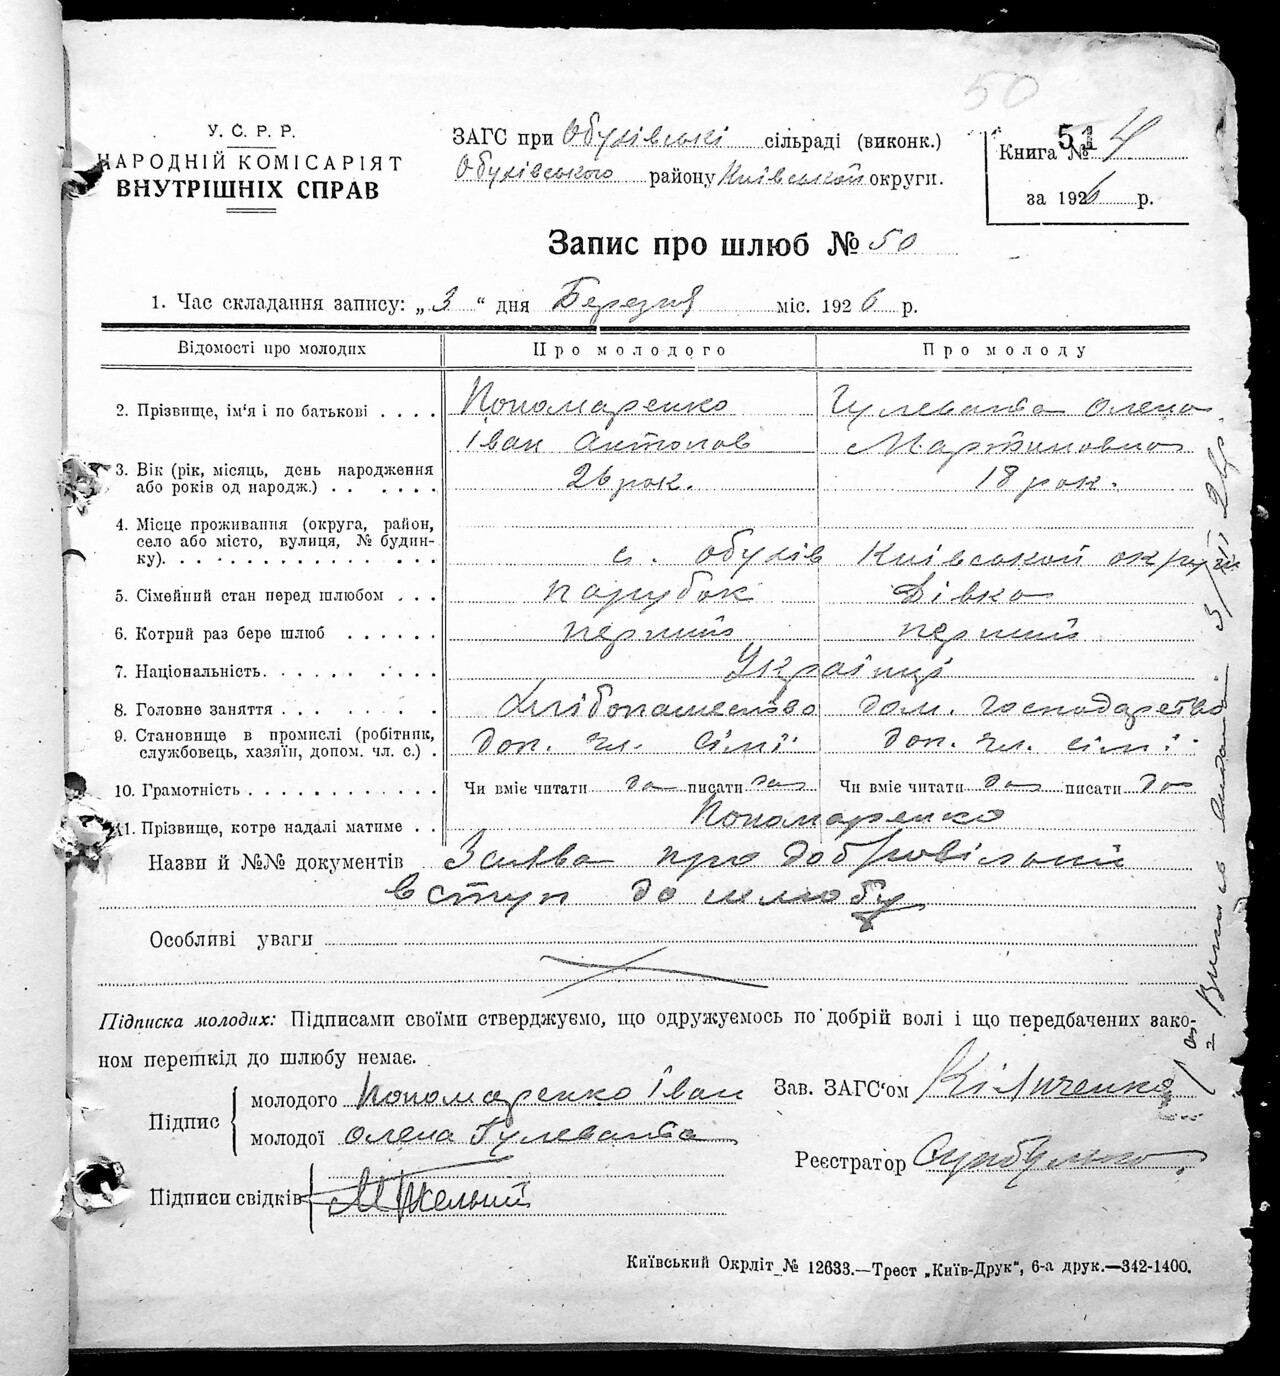 50
У. С. Р. Р.
НАРОДНІЙ КОМІСАРІЯТ
ВНУТРІШНІХ СПРАВ
ЗАГС при Обухівські сільраді (виконк.)
Обухівського району Київської округи.
514
Книга № 4
за 1926 р.
Запис про шлюб № 50
1. Час складання запису: „ 3 “ дня Березня міс. 1926 р.
Відомості про молодих
Про молодого
Про молоду
2. Прізвище, ім'я і по батькові . . . .
Пономаренко
Іван Антонов
Гулеватва Олена
Мартиновна
3. Вік (рік, місяць, день народження
або років од народж.) . . . . . .
26 рок.
18 рок.
4. Місце проживання (округа, район,
село або місто, вулиця, № будин-
ку). . . . . . . . . . . . . . .
с. Обухів Київської округи
5. Сімейний стан перед шлюбом . . .
парубок
Дівка
6. Котрий раз бере шлюб . . . . . .
перший
перший
7. Національність. . . . . . . . . .
Українці
8. Головне заняття . . . . . . . . .
Хлібопашество
дом. господарство
9. Становище в промислі (робітник,
службовець, хазяїн, допом. чл. с.) .
доп. чл. сімї
доп. чл. сімї
10. Грамотність . . . . . . . . . . . .
Чи вміє читати да писати да
Чи вміє читати да писати да
11. Прізвище, котре надалі матиме . .
Пономаренко
Назви й №№ документів Заява про добровільний
вступ до шлюбу
Особливі уваги
Підписка молодих: Підписами своїми стверджуємо, що одружуємось по добрій волі і що передбачених зако-
ном перешкід до шлюбу немає.
Підпис
молодого Пономаренко Іван
молодої Олена Гулеватва
Зав. ЗАГС'ом Кільченко
Реєстратор
Підписи свідків
Київський Окрліт № 12633.—Трест „Київ-Друк“, 6-а друк.—342-1400.